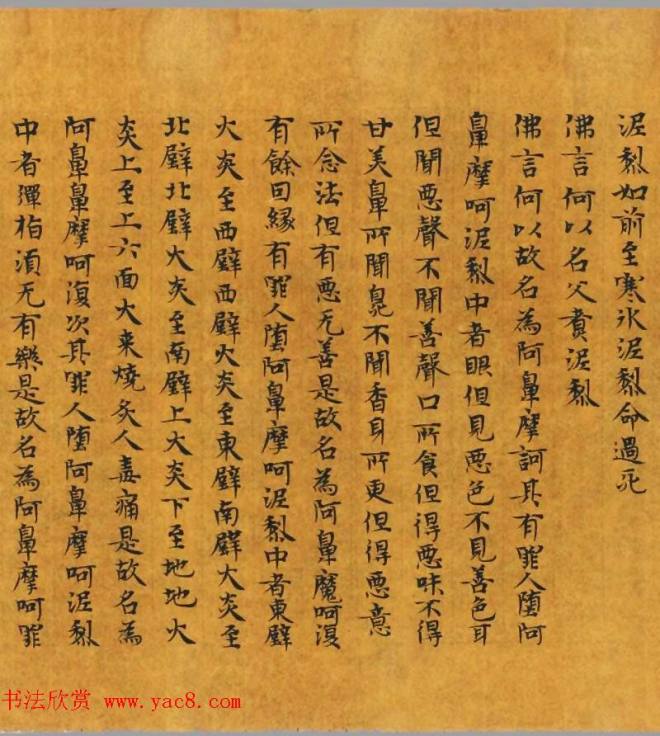 泥犁如前至寒氷泥犁命過死
佛言何以名父賁泥犁
佛言何以故名為阿鼻摩訶其有罪人堕阿
鼻摩呵泥犁中者眼但見惡色不見善色耳
但聞惡聲不聞善聲口所食但得惡味不得
甘美鼻所聞臰不聞香身所更但得惡意
所念法但有惡无善是故名為阿鼻魔呵復
有餘回縁有罪人堕阿鼻摩呵泥犁中者東壁
火炎至西壁西壁火炎至東壁南壁火炎至
北壁北壁火炎至南壁上火炎下至地地火
炎上至上六面火来燒炙人毒痛是故名為
阿鼻鼻摩呵復次其罪人堕阿鼻摩呵泥犁
中者彈指湏无有樂是故名為阿鼻摩呵罪
书法欣赏 www.yac8.com